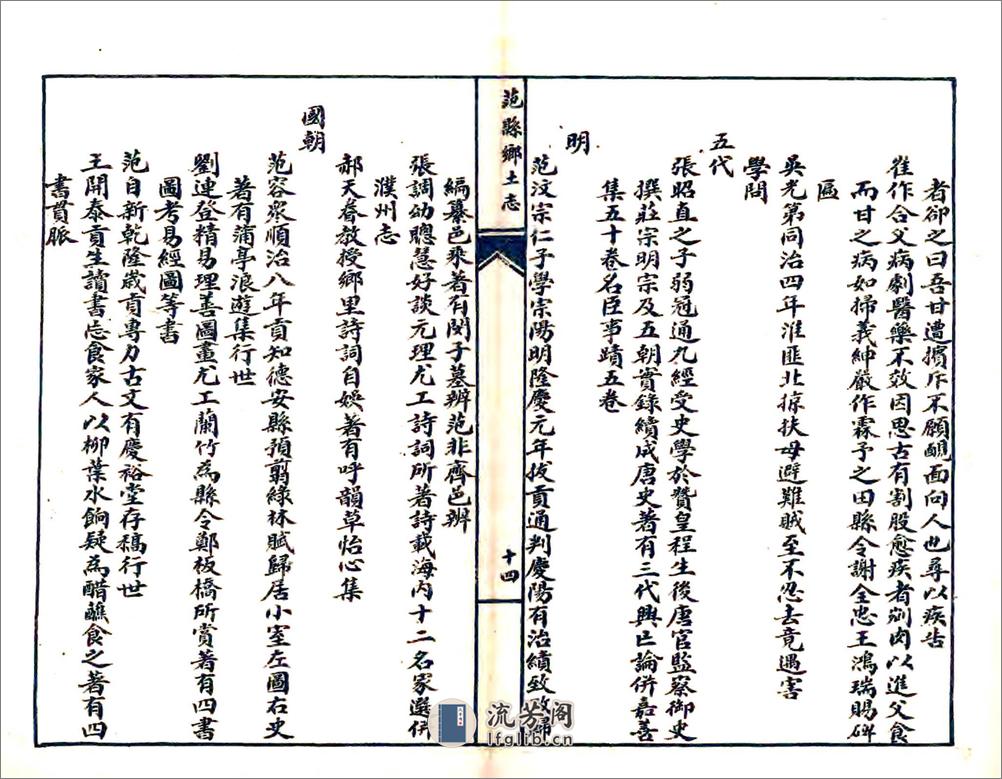 者卻之曰吾甘遭擯斥不願靦面向人也尋以疾告
崔作合父病劇醫藥不效因思古有割股愈疾者剜肉以進父食
而甘之病如掃義紳嚴作霖予之田縣令謝全忠王鴻瑞賜碑
區
吳光第同治四年淮匪北掠扶母避難賊至不忍去竟遇害
學問
五代
張昭直之子弱冠通九經受史學於贊皇程生後唐官監察御史
撰莊宗明宗及五朝實錄續成唐史著有三代興亡論併嘉善
集五十卷名臣事蹟五卷
明
范汶宗仁子學宗陽明隆慶元年拔貢通判慶陽有治績致政歸
范縣鄉土志
十四
編纂邑乘著有閔子墓辨范非齊邑辨
張調幼聰慧好談元理尤工詩詞所著詩載海內十二名家選併
濮州志
郝天眷教授鄉里詩詞自娛著有呼韻草怡心集
國朝
范容眾順治八年貢知德安縣預翦綠林賦歸居小室左圖右史
著有蒲亭浪遊集行世
劉連登精易理善圖畫尤工蘭竹為縣令鄭板橋所賞著有四書
圖考易經圖等書
范自新乾隆歲貢專力古文有慶裕堂存稿行世
王開泰貢生讀書忘食家人以柳葉水餉疑為醋蘸食之著有四
書貫脈
流芳阁
lfglib.cn